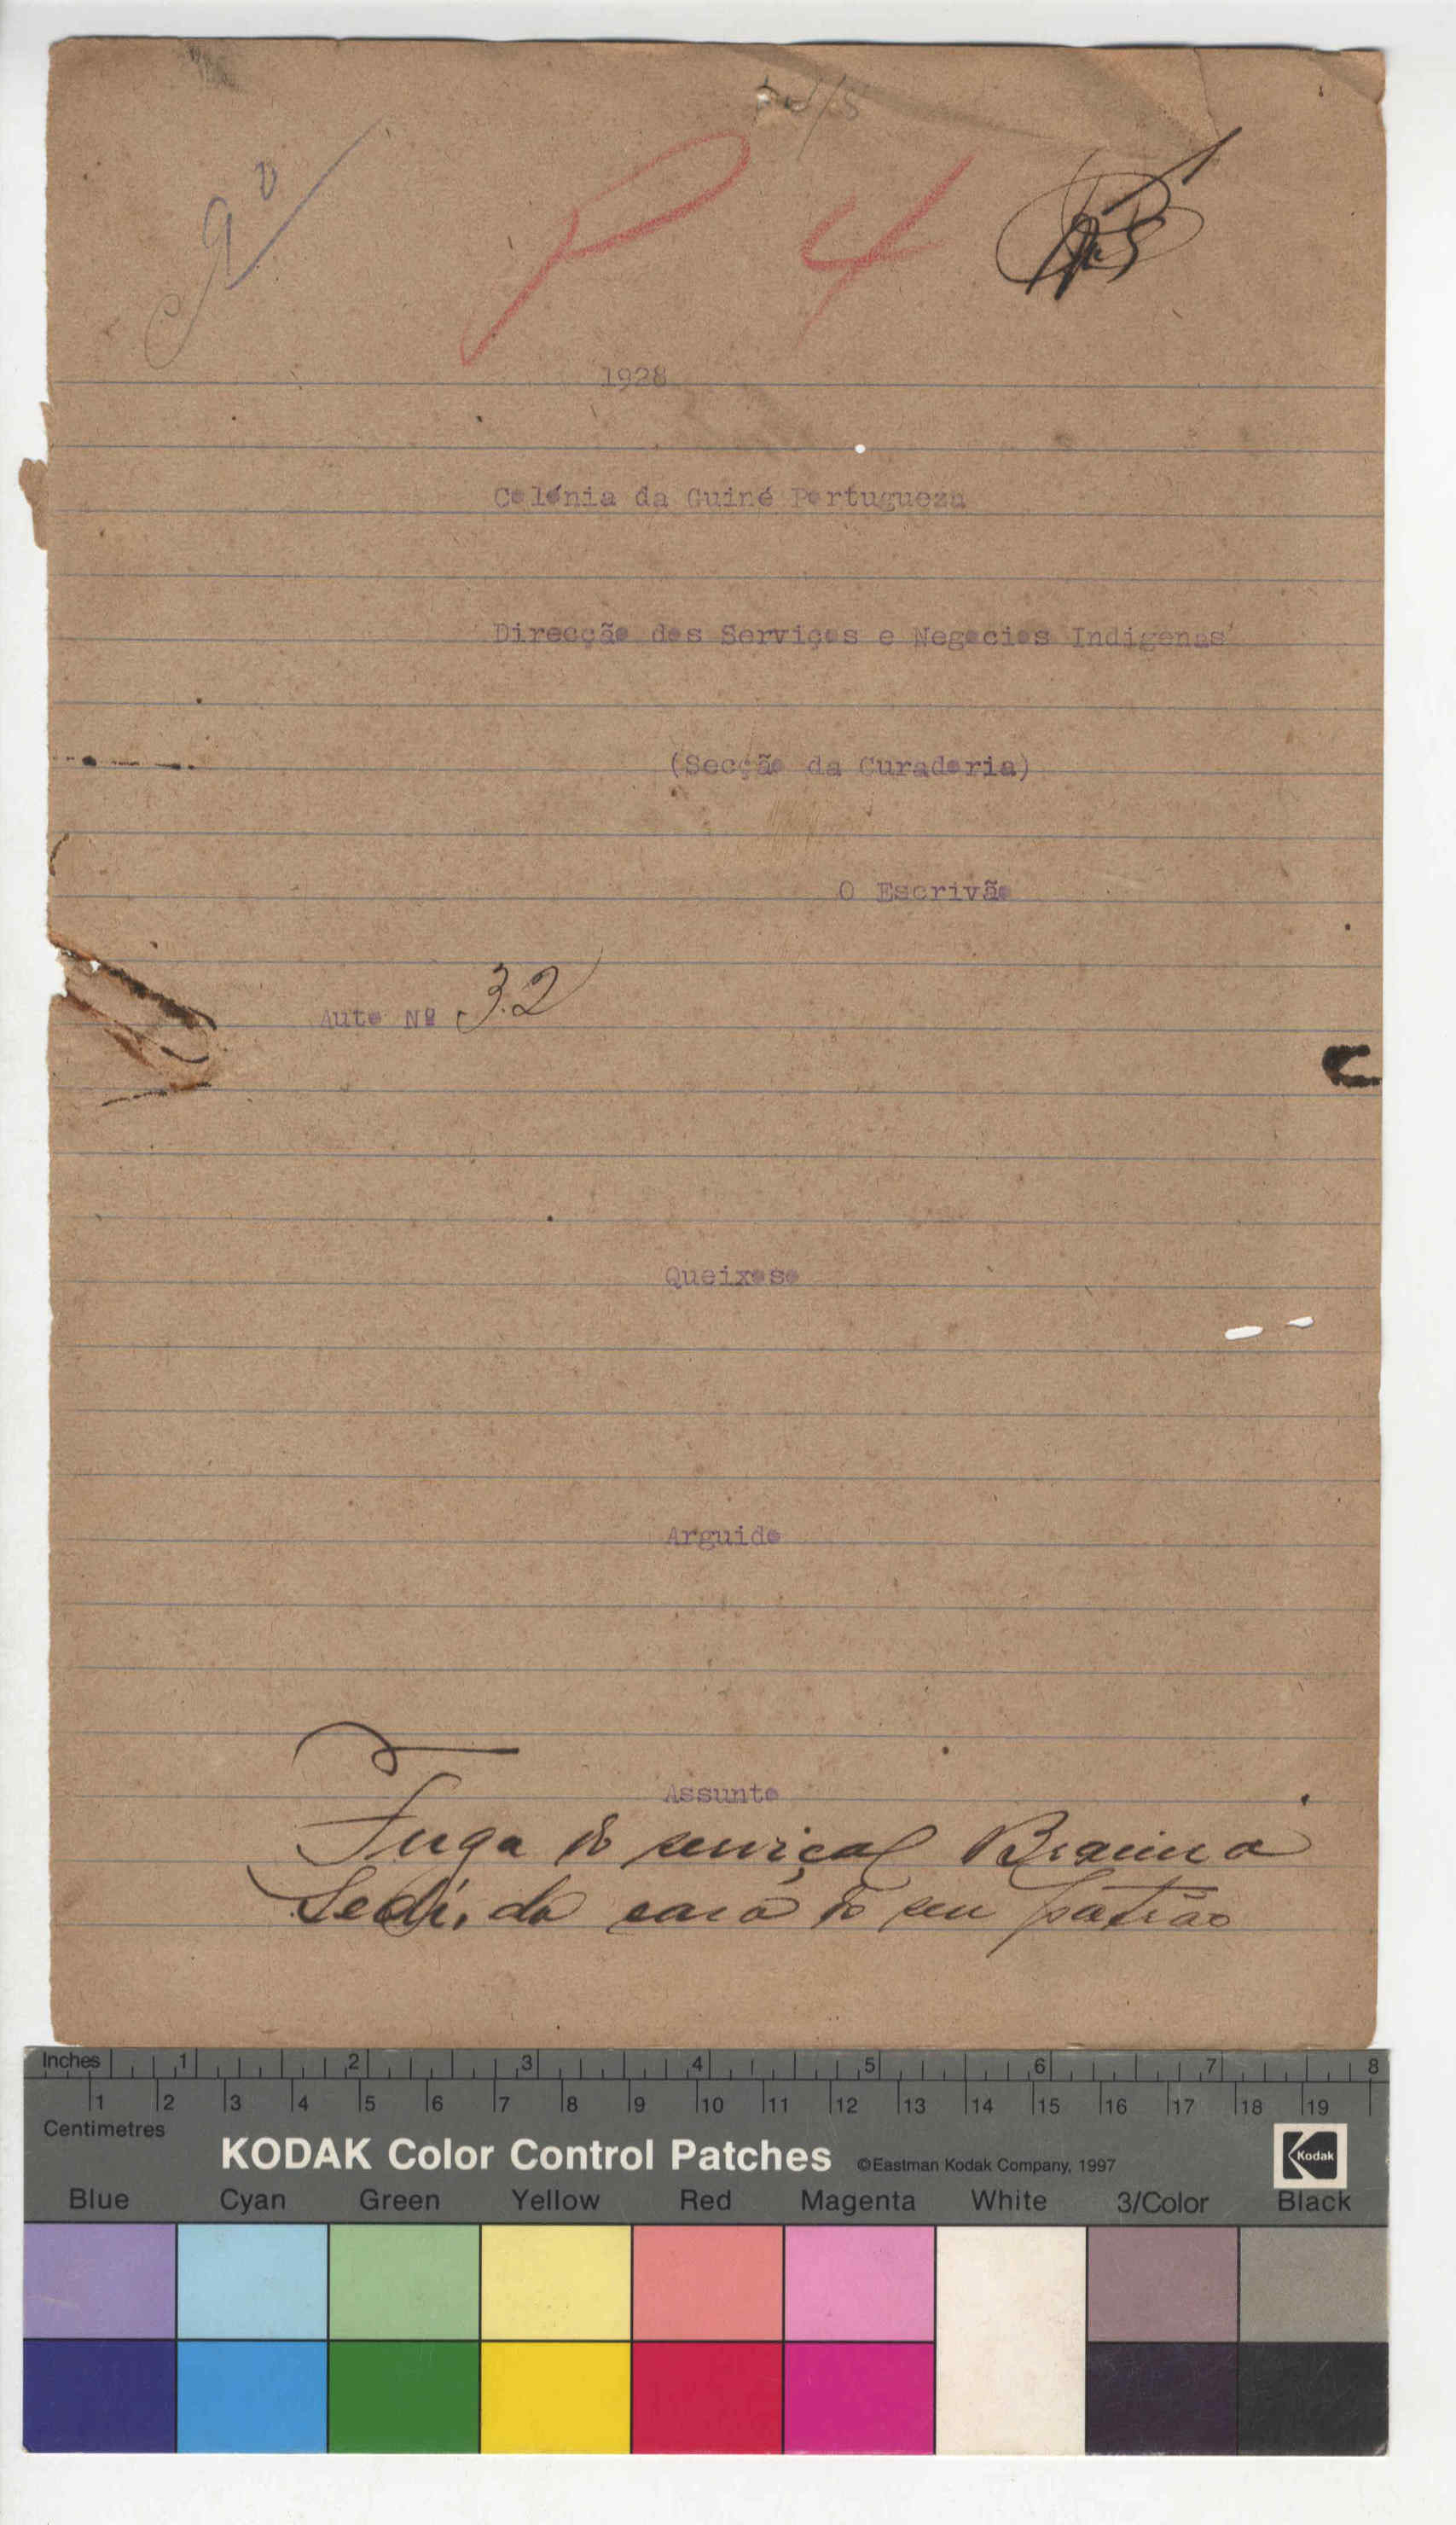 P 4
1928
Colónia da Guiné Portugueza
Direcção dos Serviços e Negocios Indigenas
(Secção da Curadoria)
O Escrivão
Auto Nº 32
Queixoso
Arguido
Assunto
Fuga do serviçal Braima
Sedi, da casa do seu patrão
Inches 1 2 3 4 5 6 7 8
1 2 3 4 5 6 7 8 9 10 11 12 13 14 15 16 17 18 19
Centimetres
KODAK Color Control Patches ©Eastman Kodak Company, 1997 Kodak
Blue Cyan Green Yellow Red Magenta White 3/Color Black